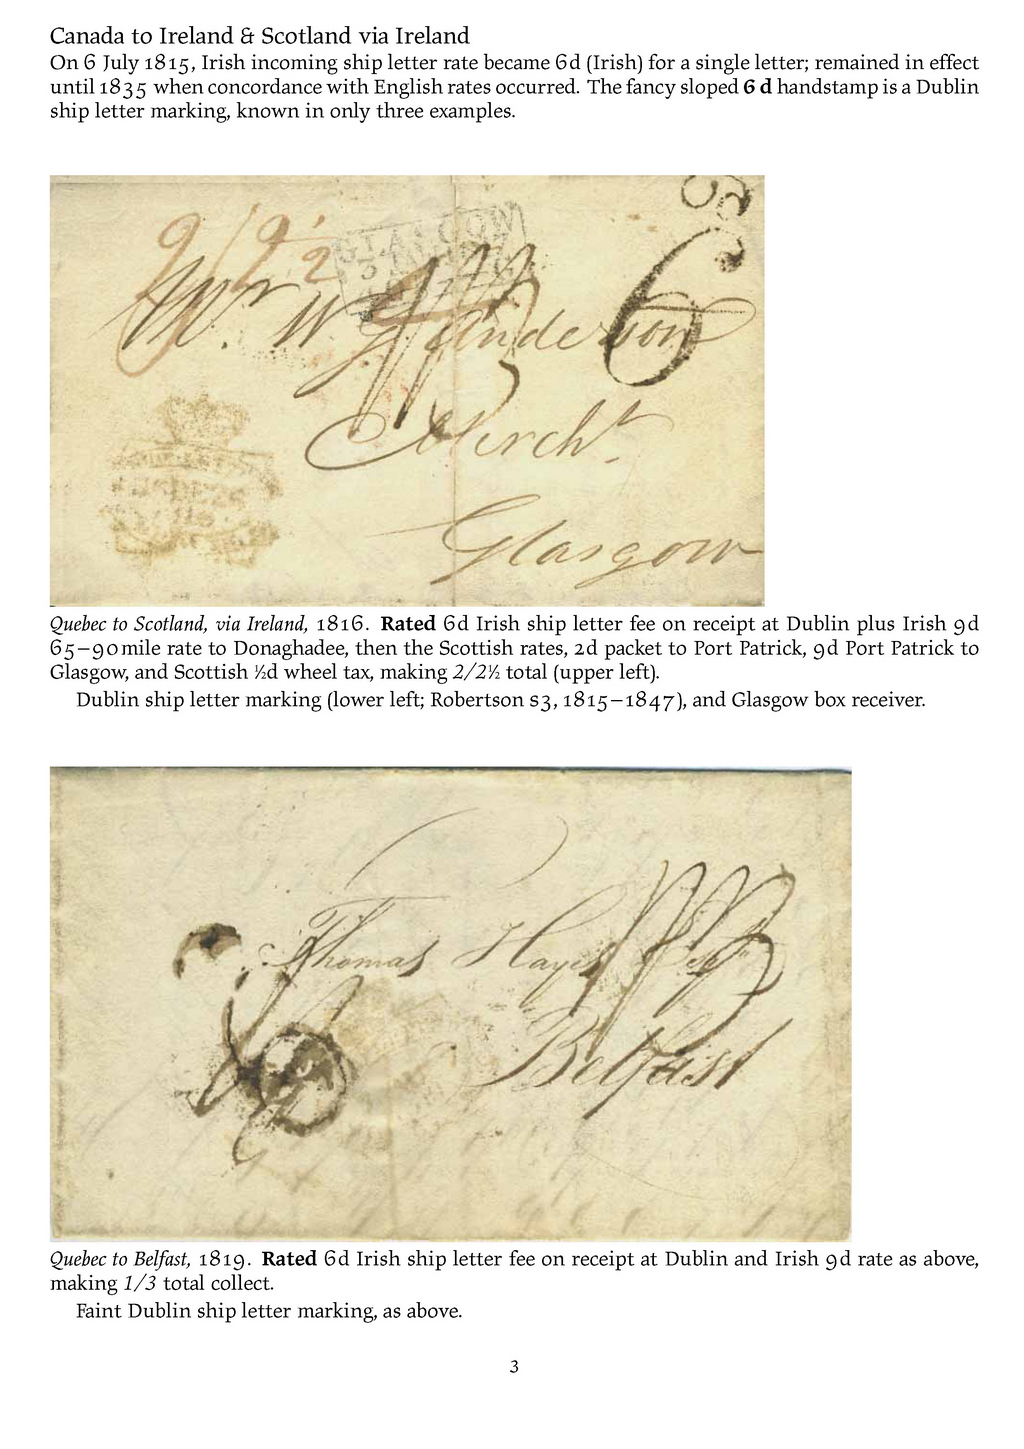 Canada to Ireland & Scotland via Ireland
On 6 July 1815, Irish incoming ship letter rate became 6d (Irish) for a single letter; remained in effect
until 1835 when concordance with English rates occurred. The fancy sloped 6 d handstamp is a Dublin
ship letter marking, known in only three examples.
2/2½
GLASGOW
6 d
Mr. Wm Anderson
Mercht.
Glasgow
Quebec to Scotland, via Ireland, 1816. Rated 6d Irish ship letter fee on receipt at Dublin plus Irish 9d
65–90 mile rate to Donaghadee, then the Scottish rates, 2d packet to Port Patrick, 9d Port Patrick to
Glasgow, and Scottish ½d wheel tax, making 2/2½ total (upper left).
Dublin ship letter marking (lower left; Robertson S3, 1815–1847), and Glasgow box receiver.
Thomas Hayes Esqr
Belfast
Quebec to Belfast, 1819. Rated 6d Irish ship letter fee on receipt at Dublin and Irish 9d rate as above,
making 1/3 total collect.
Faint Dublin ship letter marking, as above.
3